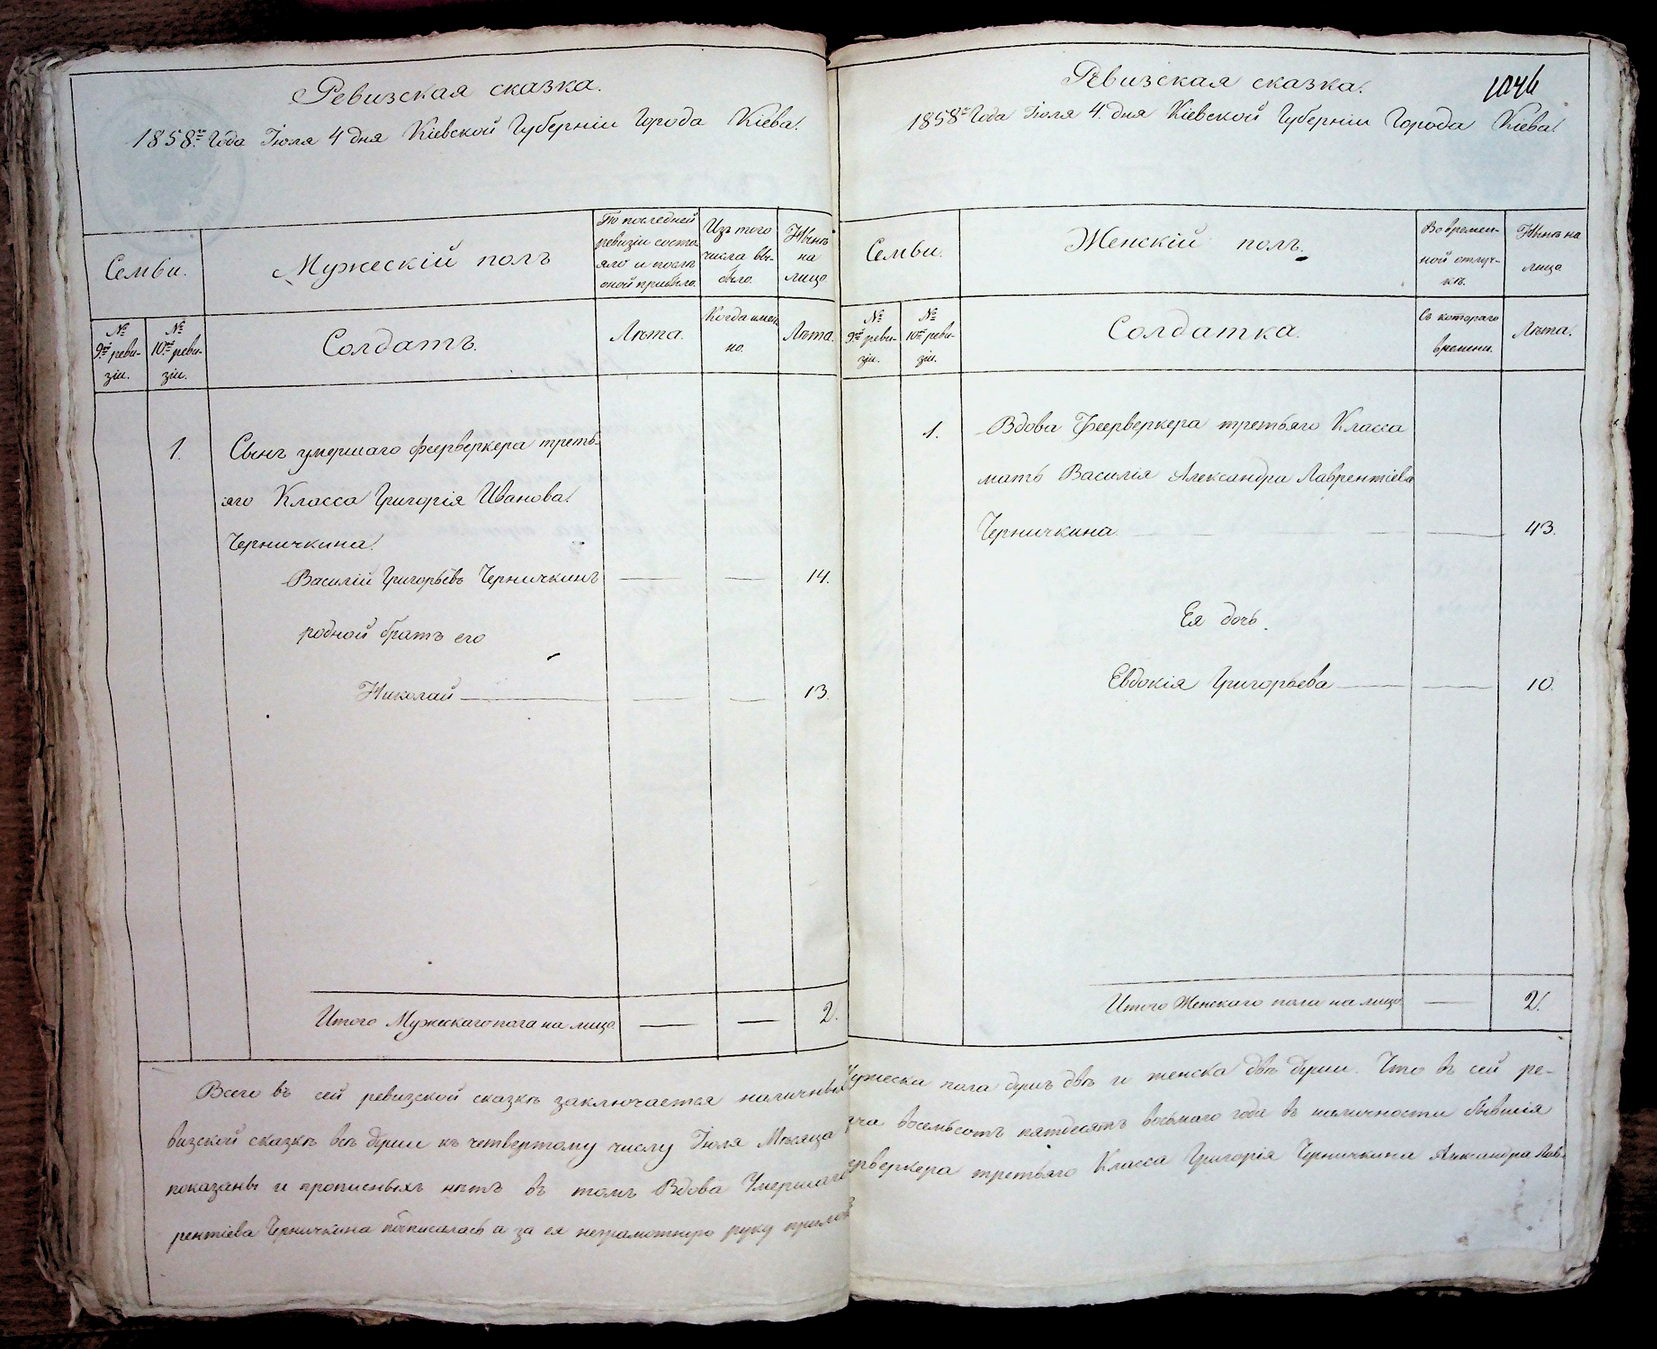 Ревизская сказка.
1858го Года Іюля 4 дня Кіевской Губерніи Города Кіева.
Семьи.
Мужескій полъ
По последней
ревизіи состо-
яло и после
оной прибыло
Изъ того
числа вы-
было
Ныне
на
лицо
№
9ой реви-
зіи.
№
10ой реви-
зіи.
Солдатъ.
Лѣта.
Когда имен-
но.
Лѣта.
1.
Сынъ умершаго феерверкера треть-
яго Класса Григорія Иванова
Черничкина.
Василій Григорьевъ Черничкинъ — — 14.
родной братъ его
Николай — — — 13.
Итого Мужескаго пола на лицо — — 2.
Всего въ сей ревизской сказкѣ заключается наличныхъ
визской сказкѣ всѣ души къ четвертому числу Іюля Мѣсяца
показаны и прописныхъ нѣтъ въ томъ Вдова Умершаго
рентіева Черничкина подписалась а за ея неграмотную руку
Ревизская сказка.
1046
1858го Года Іюля 4 дня Кіевской Губерніи Города Кіева.
Семьи.
Женскій полъ.
Во времен-
ной отлуч-
кѣ.
Нынѣ на
лицо
№
9ой реви-
зіи.
№
10ой реви-
зіи.
Солдатка.
Съ котораго
времени.
Лѣта.
1.
Вдова Феерверкера третьяго Класса
мать Василія Александра Лаврентіева
Черничкина — — 43.
Ея дочь.
Евдокія Григорьева — — 10.
Итого Женскаго пола на лицо — 2.
Мужеска пола душъ двѣ и женска двѣ души. Что въ сей ре-
восемьсотъ пятдесятъ восьмаго года въ наличности бывшія
ерверкера третьяго Класса Григорія Черничкина Александра Лав-